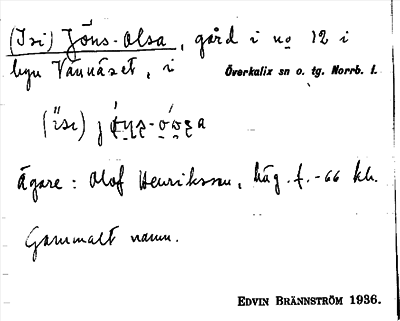 (Isi) Jöns-Olsa, gård i no 12 i
byn Vännäset, i Överkalix sn o. tg. Norrb. l.
(isi)
Ägare: Olof Henriksson, häg. f. -66 kh.
Gammalt namn.
EDVIN BRÄNNSTRÖM 1936.